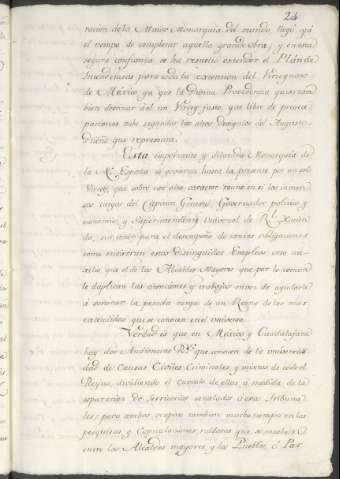 24
racion de la Maior Monarquia del mundo, llegó yá
el tiempo de completar aquella grande obra, y en una
segura confianza se ha resuelto extender el Plán de
Intendencias para toda la extension del Virreynato
de México, ya que la Divina Providencia quiso tam
bien destinar á él un Virrey justo, que libre de preocu
paciones sabe segundar los altos designios del Augusto
Dueño que representa.
Esta importante y dilatada Monarquia de
la N. España se govierna hasta la presente por un solo
Virrey, que sobre este alto caracter reune en sí los inmen
sos cargos de Capitan General, Governador politico y
economico, y Superintendente Universal de Rl. Hacien
da, sin tener para el desempeño de tantas obligaciones
como encierran estos distinguidos Empleos, otro au
xilio que el de los Alcaldes Mayores que por lo comun
le duplican las atenciones y trabajos en vez de ayudarle
á sostener la pesada carga de un Reyno de los mas
extendidos que se conocen en el universo.
Verdad es que en México y Guadalajara
hay dos Audiencias Rs. que conocen de la universali
dad de Causas Civiles Criminales, y mixtas de todo el
Reyno, dividiendo el cumulo de ellas á medida de la
separacion de territorios señalados á esos Tribuna
les; pero ambos ocupan tambien mucho tiempo en las
pesquisas, y Capitulaciones ruidosas que se suscitan
entre los Alcaldes mayores, y los Pueblos, ó Par